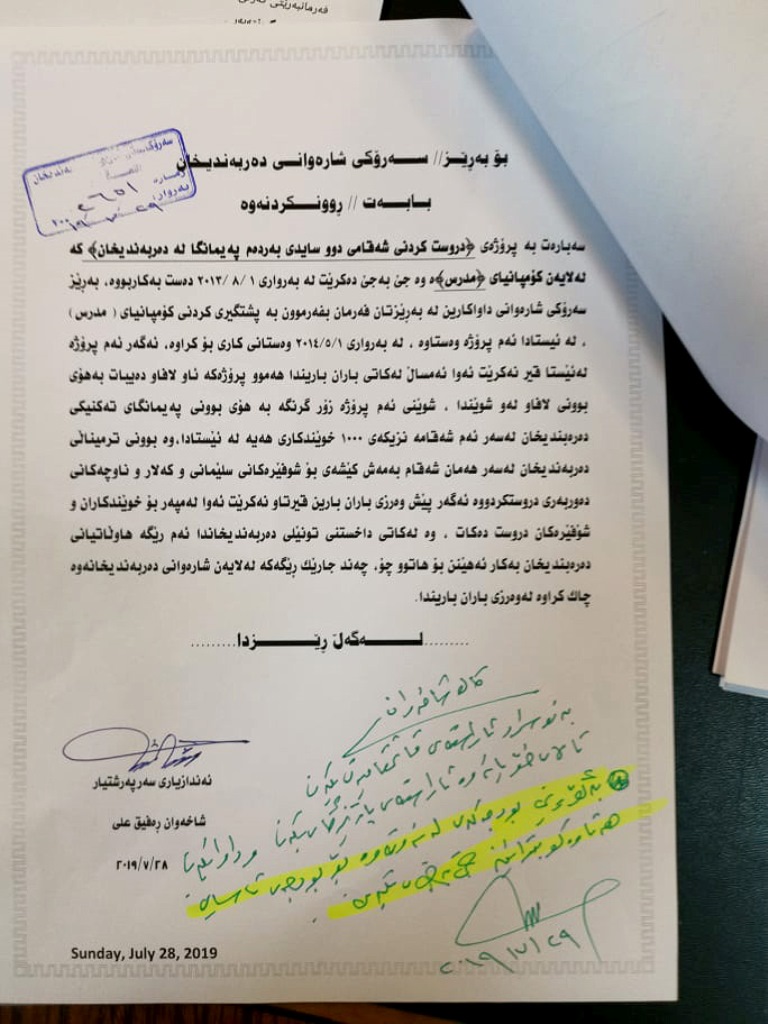 بۆ بەڕێز// سەرۆکی شارەوانی دەربەندیخان
بابەت // ڕوونکردنەوە
سەبارەت بە پرۆژەی ﴿دروست کردنی شەقامی دوو سایدی بەردەم پەیمانگا لە دەربەندیخان﴾ کە
لەلایەن کۆمپانیای ﴿مدرس﴾ە وە جێ بەجێ دەکرێت لە بەرواری ٢٠١٣/ ٨/ ١ دەست بەکاربووە، بەڕێز
سەرۆکی شارەوانی داواکارین لە بەڕێزتان فەرمان بفەرموون بە پشتگیری کردنی کۆمپانیای ( مدرس )
، لە ئیستادا ئەم پرۆژە وەستاوە ، لە بەرواری ٢٠١٤/٥/١ وەستانی کاری بۆ کراوە، ئەگەر ئەم پرۆژە
لەئێستا قیر نەکرێت ئەوا ئەمساڵ لەکاتی باران باریندا هەموو پرۆژەکە ناو لافاو دەیبات بەهۆی
بوونی لافاو لەو شوێندا ، شوێنی ئەم پرۆژە زۆر گرنگە بە هۆی بوونی پەیمانگای تەکنیکی
دەرەبندیخان لەسەر ئەم شەقامە نزیکەی ١٠٠٠ خوێندکاری هەیە لە ئێستادا،وە بوونی ترمیناڵی
دەربەندیخان لەسەر هەمان شەقام بەمەش کێشەی بۆ شوفێرەکانی سلێمانی و کەلار و ناوچەکانی
دەوربەری دروستکردووە ئەگەر پێش وەرزی باران بارین قیرتاو نەکرێت ئەوا لەمپەر بۆ خوێندکاران و
شۆفێرەکان دروست دەکات ، وە لەکاتی داخستنی تونێلی دەربەندیخاندا ئەم رێگە هاوڵاتیانی
دەرەبندیخان بەکار ئەهێنن بۆ هاتوو چۆ، چەند جارێك رێگەکە لەلایەن شارەوانی دەربەندیخانەوە
چاك کراوە لەوەرزی باران باریندا.
.........لـــەگەڵ ڕێـــزدا.........
ئەندازیاری سەرپەرشتیار
شاخەوان رەفیق علی
٢٠١٩/٧/٢٨
٢٠١٩/٧/٢٩
Sunday, July 28, 2019